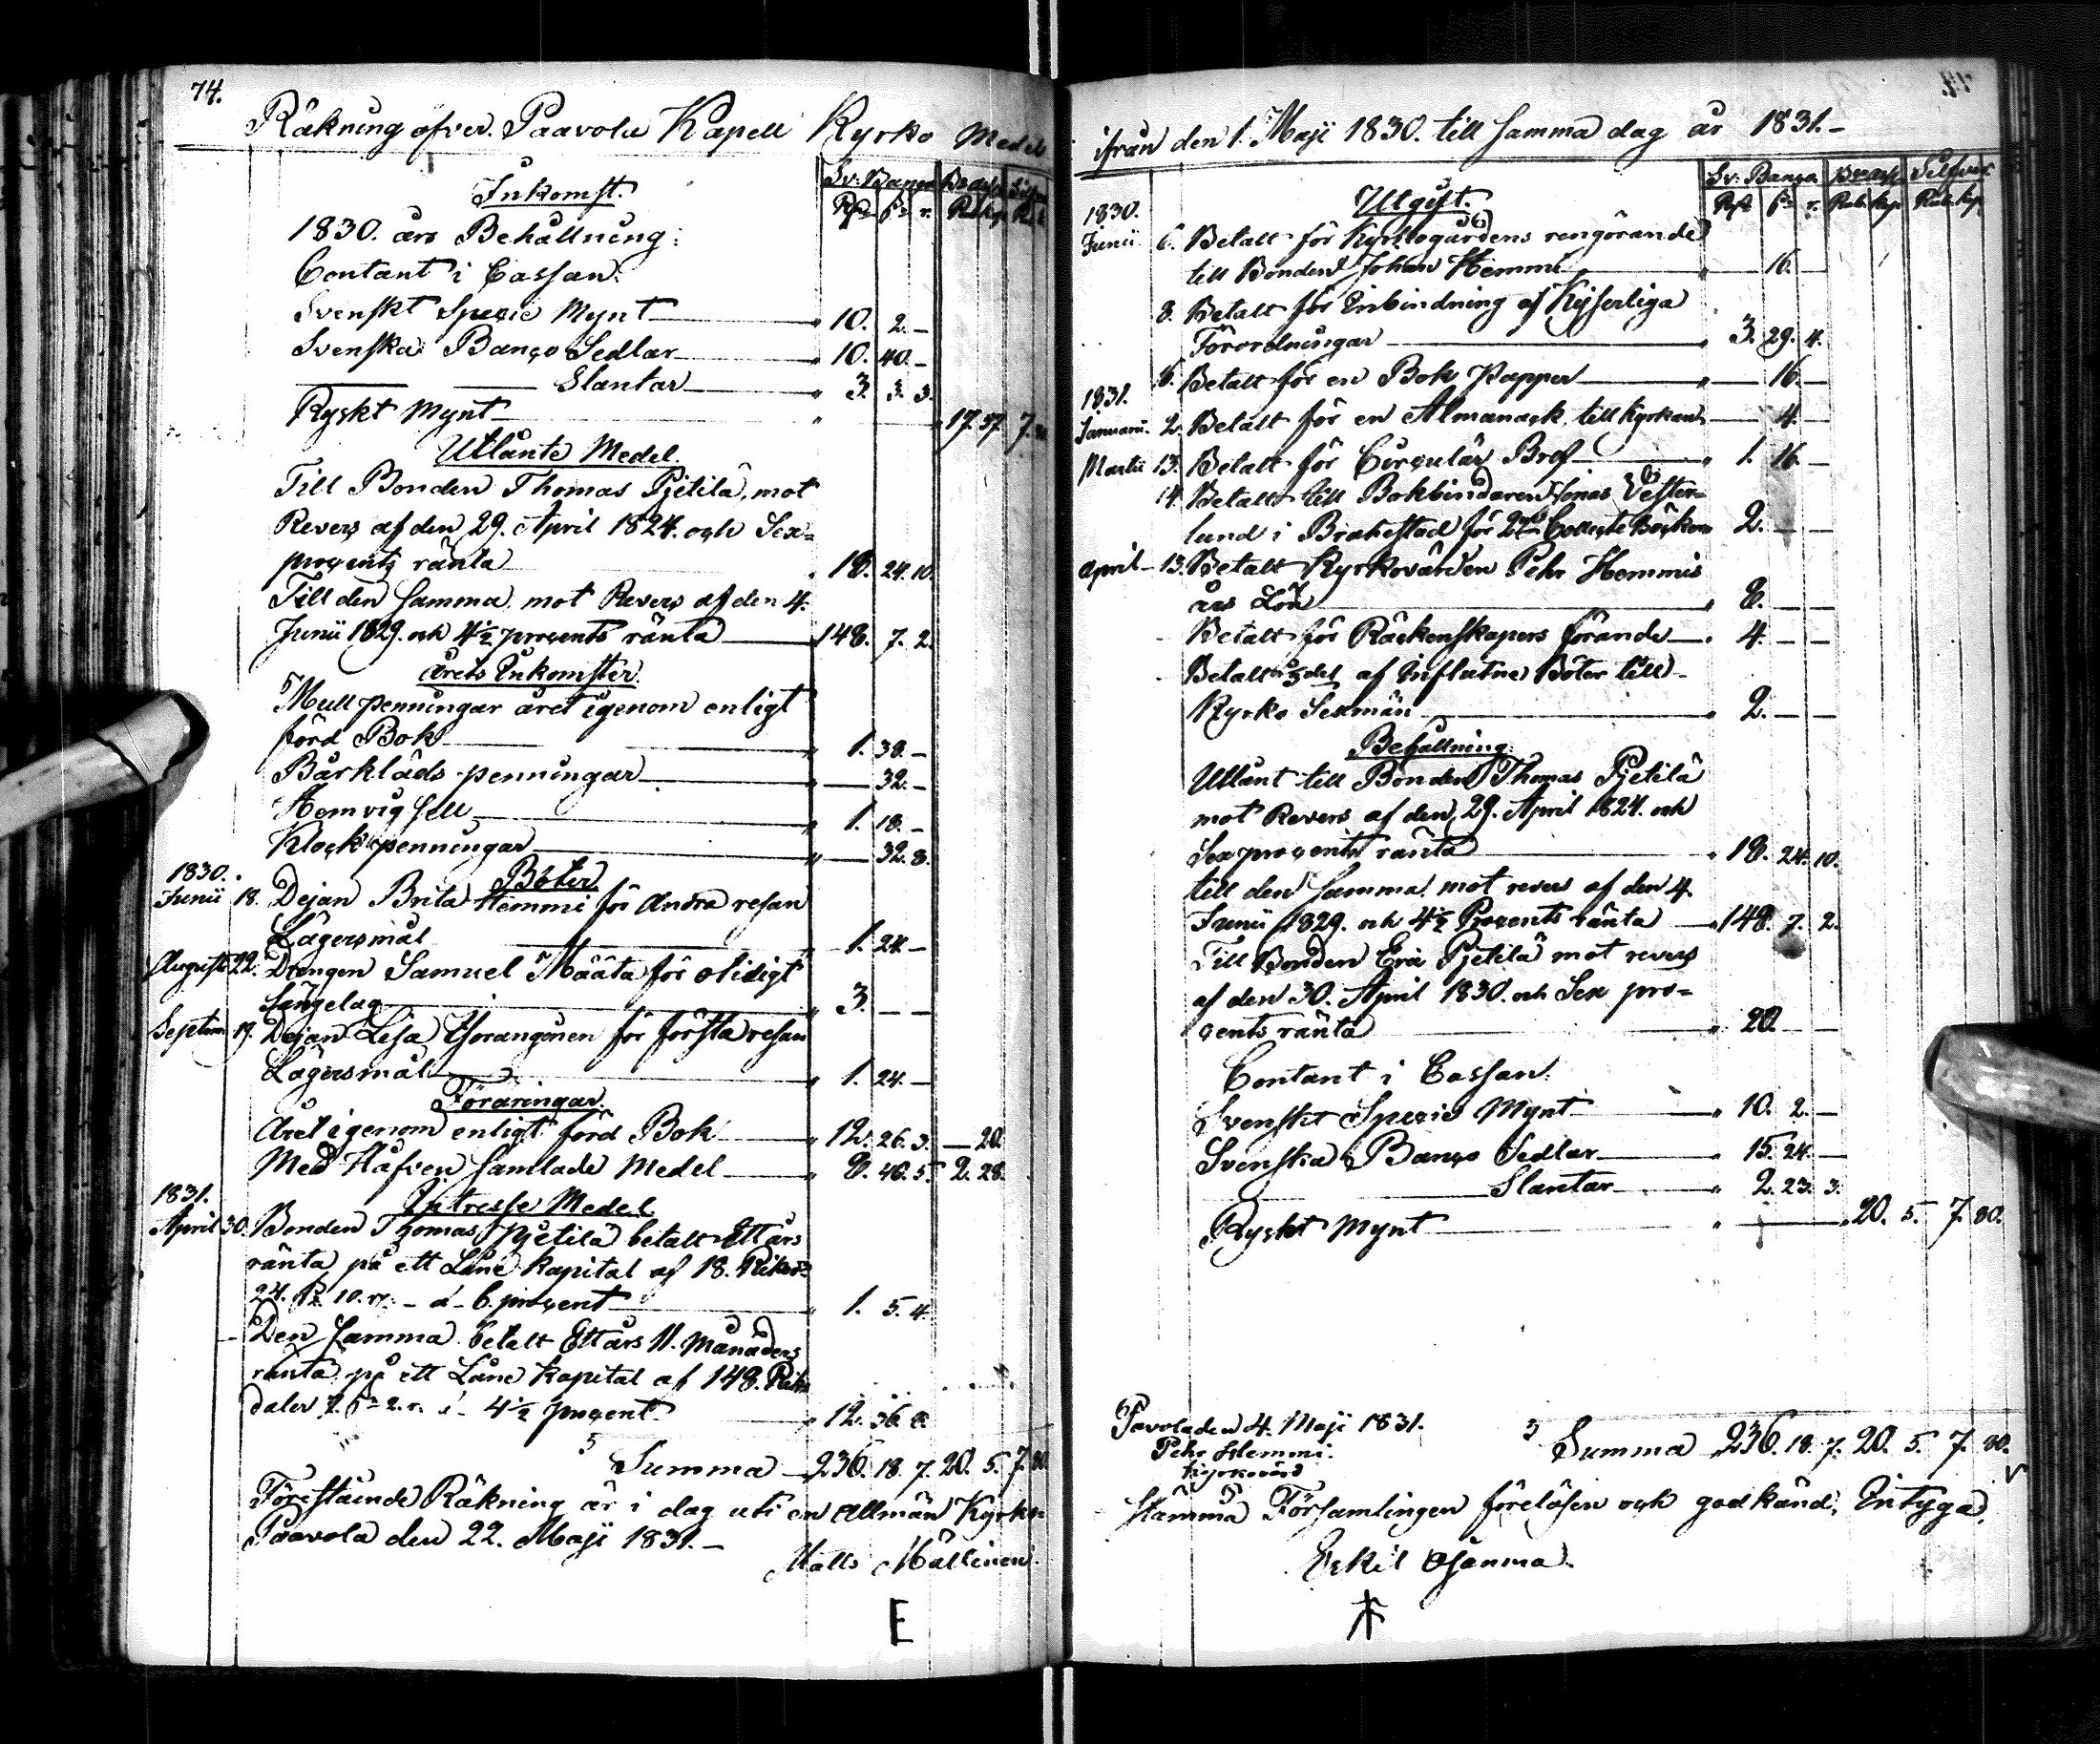 74.
Räkning öfver Paavola Kapell Kyrko Medel
Sv: Banco
Inkomst.
1830. års Behållning:
Contant i Cassan:
Svenskt Specie Mynt „ 10. 2. –
Svenska Banco Sedlar „ 10. 40. –
Slantar „ 3. 3. 3.
Ryskt Mynt „ 17. 57. 7. 80.
Utlånte Medel.
Till Bonden Thomas Pjetilä, mot
Revers af den 29. April 1824. och Sex=
procents ränta 18. 24. 10.
Till den samma mot Revers af den 4.
Junii 1829. och 4½ procents ränta 148. 7. 2.
Årets Inkomster.
Mullpenningar året igenom enligt
förd Bok „ 1. 38. –
Bårkläds penningar „ – 32. –
Hemvigsell „ 1. 18. –
Klockpenningar „ – 32. 8.
Böter.
1830.
Junii 18. Dejan Brita Hemmi för Andra resan
Lägersmål „ 1. 24. –
Augusti 22. Drengen Samuel Määta för olidigt
Sängelag „ 3. – –
Septem 19. Dejan Lisa för första resan
Lägersmål „ 1. 24. –
Föräringar.
Året igenom enligt förd Bok „ 12. 26. 3. – 20.
Med Håfven samlade Medel „ 8. 46. 5. 2. 28.
1831.
Intresse Medel
April 30. Bonden Thomas Pjetilä betalt Ett års
ränta på ett Låne kapital af 18. Riksd:
24. ſ: 10. r. – a – 6. procent „ 1. 5. 4.
Den samma betalt Ett års 11. månaders
ränta på ett Låne kapital af 148. Riks
daler 7. ſ: 2. r. á 4½ procent „ 12. 36. 8.
Summa 236. 18. 7. 20. 5. 7. 80.
Förestående Räkning är i dag uti en Allmän Kyrko
Paavola den 22. Maji 1831. –
Matts Mällinen.
E
ifrån den 1. Maji 1830. till samma dag år 1831. –
Sv: Banco Silfver
Rub. kop. Rub. kop.
Utgift.
1830.
Junii 6. Betalt för Kyrkogårdens rengörande
till Bonden Johan Hemmi „ – 16. –
8. Betalt för Inbindning af Kejserliga
Förordningar „ 3. 29. 4.
16. Betalt för en Bok Papper „ – 16. –
1831.
Januarii 2. Betalt för en Almanack till Kyrkan – 4. –
Martii 13. Betalt för Circulär Bref „ 1. 16. –
14. Betalt till Bokbindaren Jonas Vester=
lund i Brahestad för Collecte Böcker 2. – –
April – 13. Betalt Kyrkovärden Pehr Hemmis
års Lön „ 8. – –
Betalt för Räckenskapers förande „ 4. – –
Betalt ⅓ del af Influtne Böter till
Kyrko Sexmän „ 2. – –
Behållning
Utlånt till Bonden Thomas Pjetilä
mot Revers af den 29. April 1824. och
Sex procents ränta „ 18. 24. 10.
till den samma mot revers af den 4.
Junii 1829. och 4½ Procents ränta „ 148. 7. 2.
Till Bonden Pjetilä mot revers
af den 30. April 1830. och Sex pro=
cents ränta „ 20. – –
Contant i Cassan:
Svenskt Specie Mynt „ 10. 2. –
Svenska Banco Sedlar „ 15. 24. –
Slantar „ 2. 23. 3.
Ryskt Mynt „ 20. 5. 7. 80.
Pavola den 4. Maji 1831.
Pehr Hemmi.
Kyrkovärd
Summa 236. 18. 7. 20. 5. 7. 80.
Stämma Församlingen föreläsen och godkänd, Intyga,
Eskil